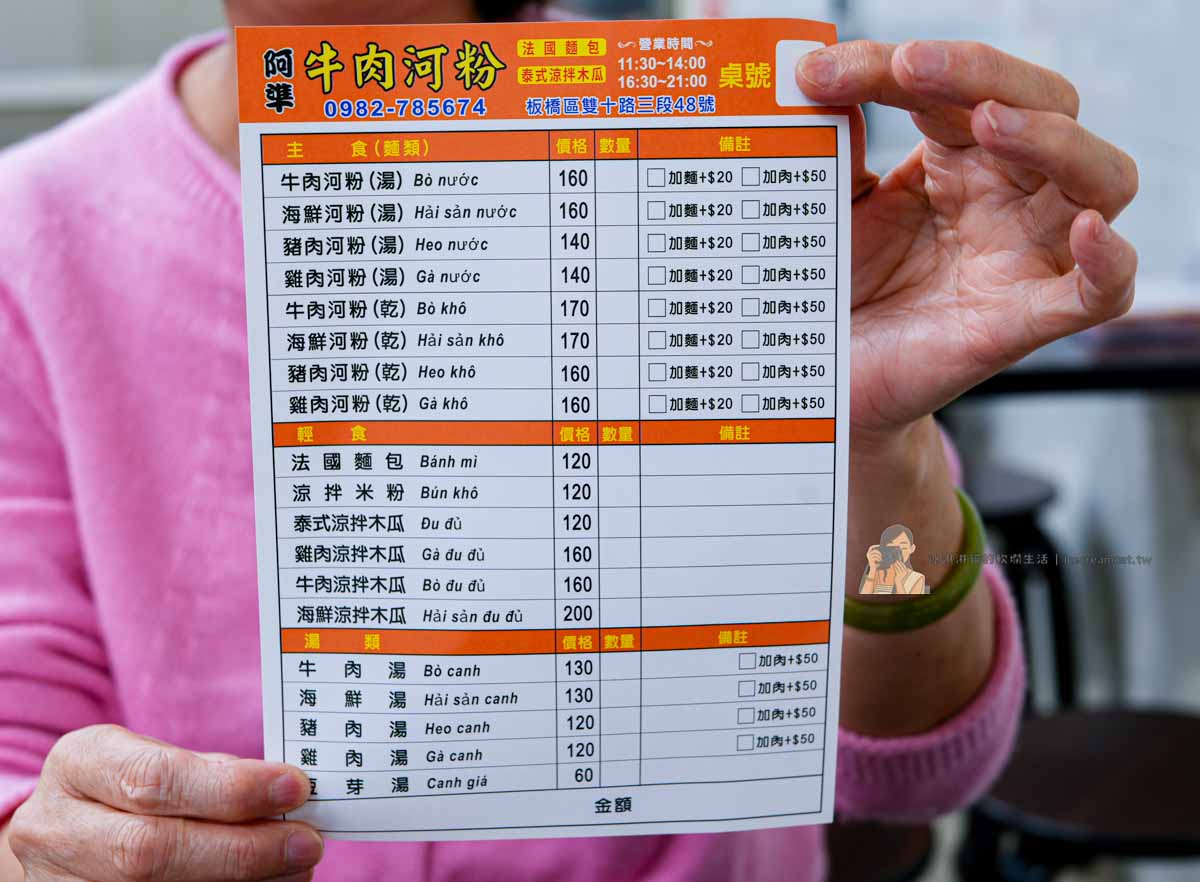 阿準 牛肉河粉 法國麵包 泰式涼拌木瓜 營業時間 11:30~14:00 16:30~21:00 桌號
0982-785674 板橋區雙十路三段48號
主 食(麵類) 價格 數量 備註
牛肉河粉(湯) Bò nước 160 □加麵+$20 □加肉+$50
海鮮河粉(湯) Hải sản nước 160 □加麵+$20 □加肉+$50
豬肉河粉(湯) Heo nước 140 □加麵+$20 □加肉+$50
雞肉河粉(湯) Gà nước 140 □加麵+$20 □加肉+$50
牛肉河粉(乾) Bò khô 170 □加麵+$20 □加肉+$50
海鮮河粉(乾) Hải sản khô 170 □加麵+$20 □加肉+$50
豬肉河粉(乾) Heo khô 160 □加麵+$20 □加肉+$50
雞肉河粉(乾) Gà khô 160 □加麵+$20 □加肉+$50
輕 食 價格 數量 備註
法國麵包 Bánh mì 120
涼拌米粉 Bún khô 120
泰式涼拌木瓜 Đu đủ 120
雞肉涼拌木瓜 Gà đu đủ 160
牛肉涼拌木瓜 Bò đu đủ 160
海鮮涼拌木瓜 Hải sản đu đủ 200
湯 類 價格 數量 備註
牛肉湯 Bò canh 130 □加肉+$50
海鮮湯 Hải sản canh 130 □加肉+$50
豬肉湯 Heo canh 120 □加肉+$50
雞肉湯 Gà canh 120 □加肉+$50
豆芽湯 Canh giá 60
金額